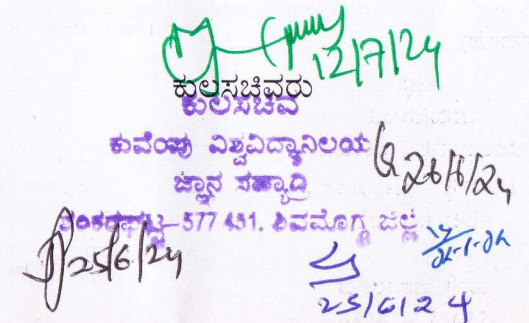 12/7/24
ಕುಲಸಚಿವರು
ಕುಲಸಚಿವ
ಕುವೆಂಪು ವಿಶ್ವವಿದ್ಯಾನಿಲಯ
26/6/24
ಜ್ಞಾನ ಸಹ್ಯಾದ್ರಿ
ಶಂಕರಘಟ್ಟ-577 451. ಶಿವಮೊಗ್ಗ ಜಿಲ್ಲೆ
25/6/24
25/6/24